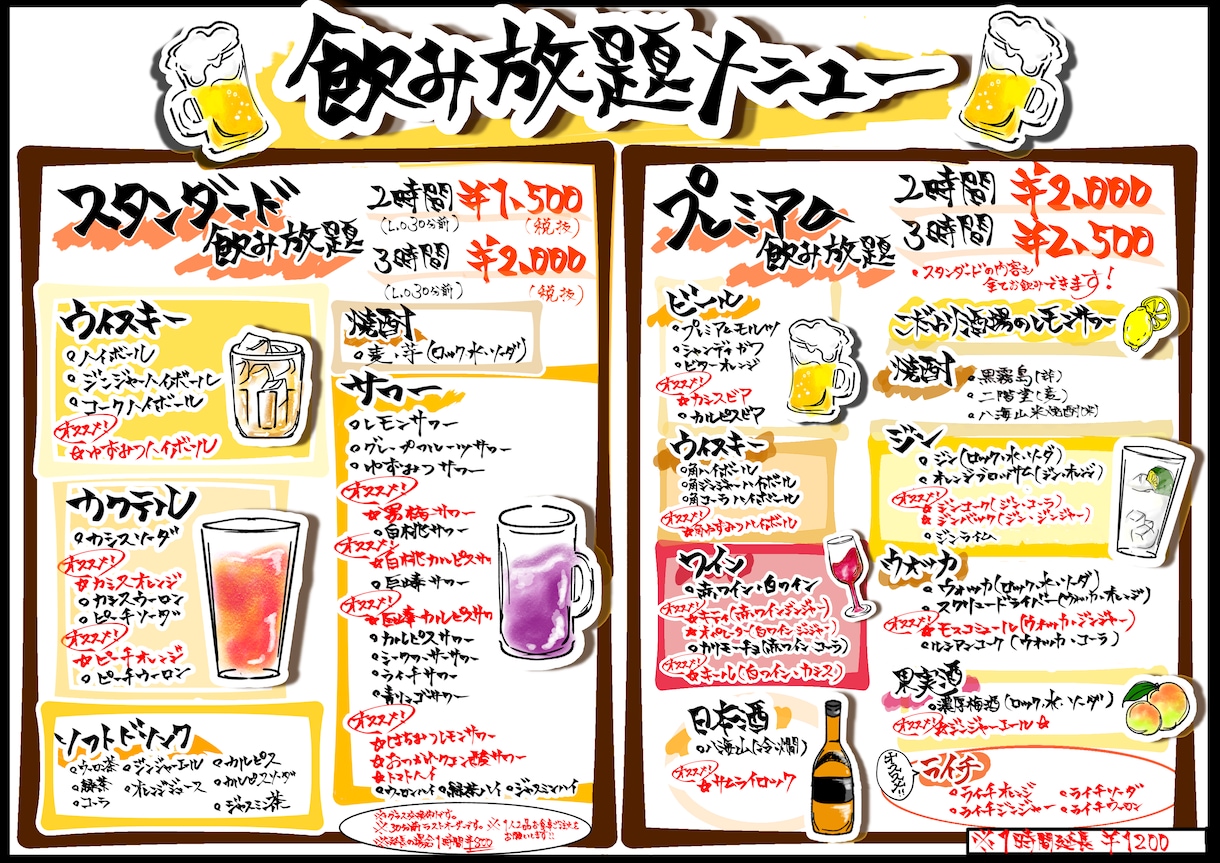 飲み放題メニュー
スタンダード
飲み放題
2時間 ¥1,500
(L.O 30分前) (税抜)
3時間 ¥2,000
(L.O 30分前) (税抜)
ウイスキー
○ハイボール
○ジンジャーハイボール
○コークハイボール
オススメ!
☆ゆずみつハイボール
カクテル
○カシスソーダ
オススメ!
☆カシスオレンジ
○カシスウーロン
○ピーチソーダ
オススメ!
☆ピーチオレンジ
○ピーチウーロン
ソフトドリンク
○ウーロン茶 ○ジンジャーエール ○カルピス
○緑茶 ○オレンジジュース ○カルピスソーダ
○コーラ ○ジャスミン茶
焼酎
○麦・芋(ロック・水・ソーダ)
サワー
○レモンサワー
○グレープフルーツサワー
○ゆずみつサワー
オススメ!
☆男梅サワー
○白桃サワー
オススメ!
☆白桃カルピスサワー
○巨峰サワー
オススメ!
☆巨峰カルピスサワー
○カルピスサワー
○シークワーサーサワー
○ライチサワー
○青りんごサワー
オススメ!
☆はちみつレモンサワー
☆おつかれクエン酸サワー
☆トマトハイ
○ウーロンハイ ○緑茶ハイ ○ジャスミンハイ
※グラス交換制です。
※30分前ラストオーダーです。 ※1人2品お食事ご注文をお願いします!!
※延長の場合1時間¥800
プレミアム
飲み放題
2時間 ¥2,000
3時間 ¥2,500
・スタンダードの内容も
全てお飲みできます!
ビール
○プレミアムモルツ
○シャンディガフ
○ビターオレンジ
オススメ!
☆カシスビア
○カルピスビア
ウイスキー
○角ハイボール
○角ジンジャーハイボール
○角コーラハイボール
オススメ!
☆角ゆずみつハイボール
ワイン
○赤ワイン・白ワイン
オススメ!
☆キティ(赤ワイン・ジンジャー)
☆オペレーター(白ワイン・ジンジャー)
○カリモーチョ(赤ワイン・コーラ)
オススメ!
☆キール(白ワイン・カシス)
日本酒
○八海山(冷・燗)
オススメ!
☆サムライロック
こだわり酒場のレモンサワー
焼酎
○黒霧島(芋)
○二階堂(麦)
○八海山米焼酎(米)
ジン
○ジン(ロック・水・ソーダ)
○オレンジブロッサム(ジン・オレンジ)
オススメ!
☆ジンコーク(ジン・コーラ)
☆ジンバック(ジン・ジンジャー)
○ジンライム
ウォッカ
○ウォッカ(ロック・水・ソーダ)
○スクリュードライバー(ウォッカ・オレンジ)
オススメ!
☆モスコミュール(ウォッカ・ジンジャー)
○ルシアンコーク(ウォッカ・コーラ)
果実酒
○濃厚梅酒(ロック・水・ソーダ)
オススメ!
☆ジンジャーエール☆
オススメ!!
ライチ
☆ライチオレンジ ☆ライチソーダ
☆ライチジンジャー ☆ライチウーロン
※1時間延長 ¥1200